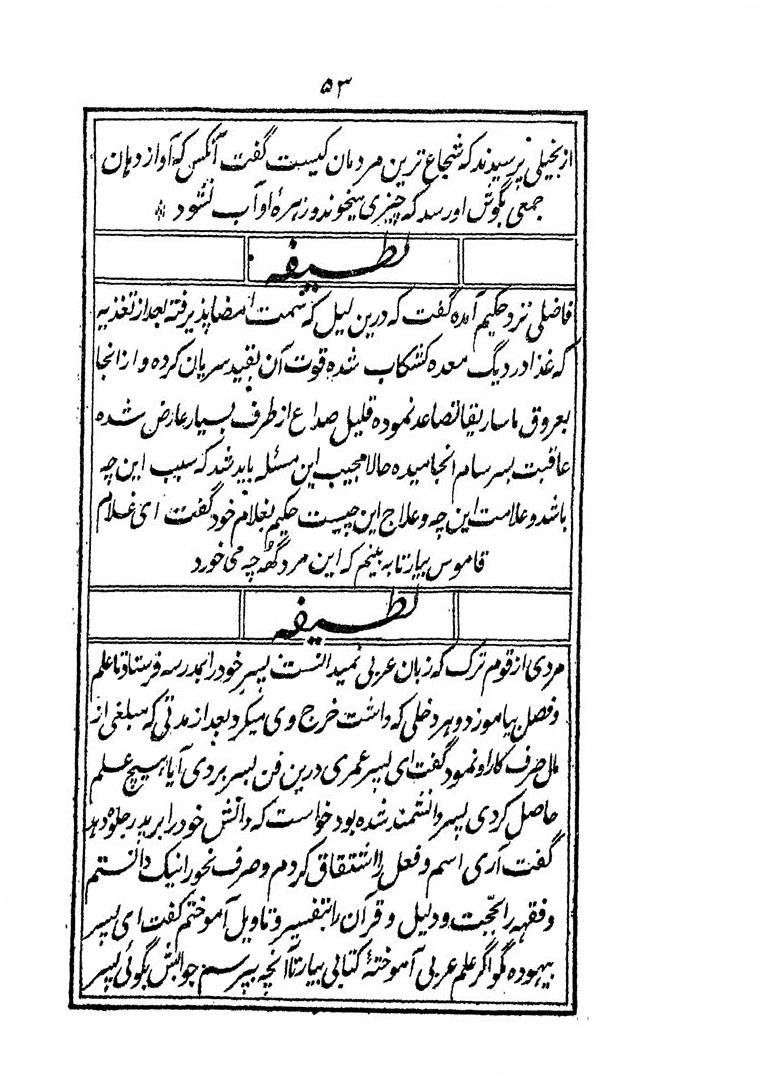 ۵۳
از بخیلی پرسیدند که شجاع ترین مردمان کیست گفت آنکس که آواز دهان
جمعی بگوش او رسد که چیزی میخوند و زهرهٔ او آب نشود
لطیفه
فاضلی نزد حکیم آمده گفت که درین لیل که سمت امضا پذیرفته بعد از تغذیه
که غذا در دیگ معده کشکاب شده قوت آن بقید سریان کرده و از انجا
بعروق ماساریقا تصاعد نموده قلیل صداع از طرف یسار عارض شده
عاقبت بسرسام انجامیده حالا مجیب این مسئله باید شد که سبب این چه
باشد و علامت این چه و علاج این چیست حکیم بغلام خود گفت ای غلام
قاموس بیار تا به بینم که این مرد گهه چه می خورد
لطیفه
مردی از قوم ترک که زبان عربی نمیدانست پسر خود را بمدرسه فرستاد تا علم
و فضل بیاموزد و هر دخلی که داشت خرج وی میکرد بعد از مدتی که مبلغی از
مال صرف کار او نمود گفت ای پسر عمری درین فن بسر بردی آیا هیچ علم
حاصل کردی پسر دانشمند شده بود خواست که دانش خود را بر پدر جلوه دهد
گفت آری اسم و فعل را اشتقاق کردم و صرف نحو را نیک دانستم
و فقه را بحجت و دلیل و قرآن را بتفسیر و تاویل آموختم گفت ای پسر
بیهوده گو اگر علم عربی آموختهٔ کتابی بیار تا آنچه بپرسم جوابش بگوئی پسر